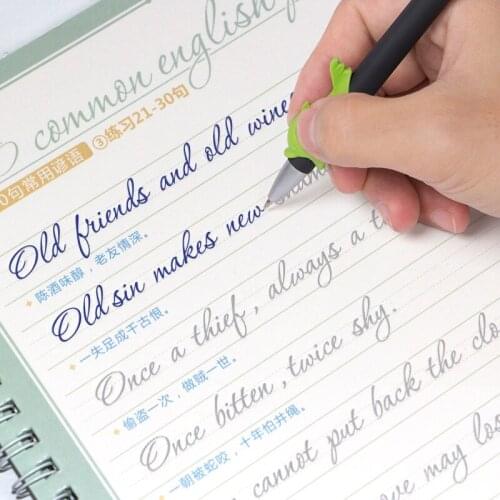 common english
0句常用谚语 ③练习21-30句
Old friends and old wines
陈酒味醇，老友情深。
Old sin makes new shame
一失足成千古恨。
Once a thief, always a t
偷盗一次，做贼一世。
Once bitten, twice shy.
一朝被蛇咬，十年怕井绳。
cannot put back the clo
may los